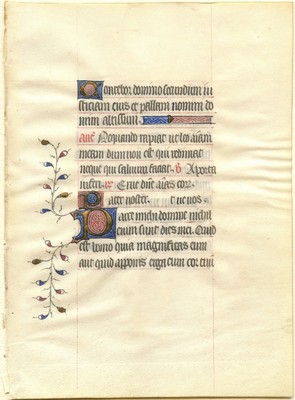 Confitebor domino secundum iu
sticiam eius et psallam nomini do
mini altissimi.
Ant Nequando rapiat ut leo aiam
meam dum non est qui redimat
neque qui saluum faciat. A porta
inferi. Erue dne aias eor
Pater noster. Et ne nos.
Parce michi domine nichil
enim sunt dies mei. Quid
est homo quia magnificas eum
aut quid apponis erga eum cor tuu